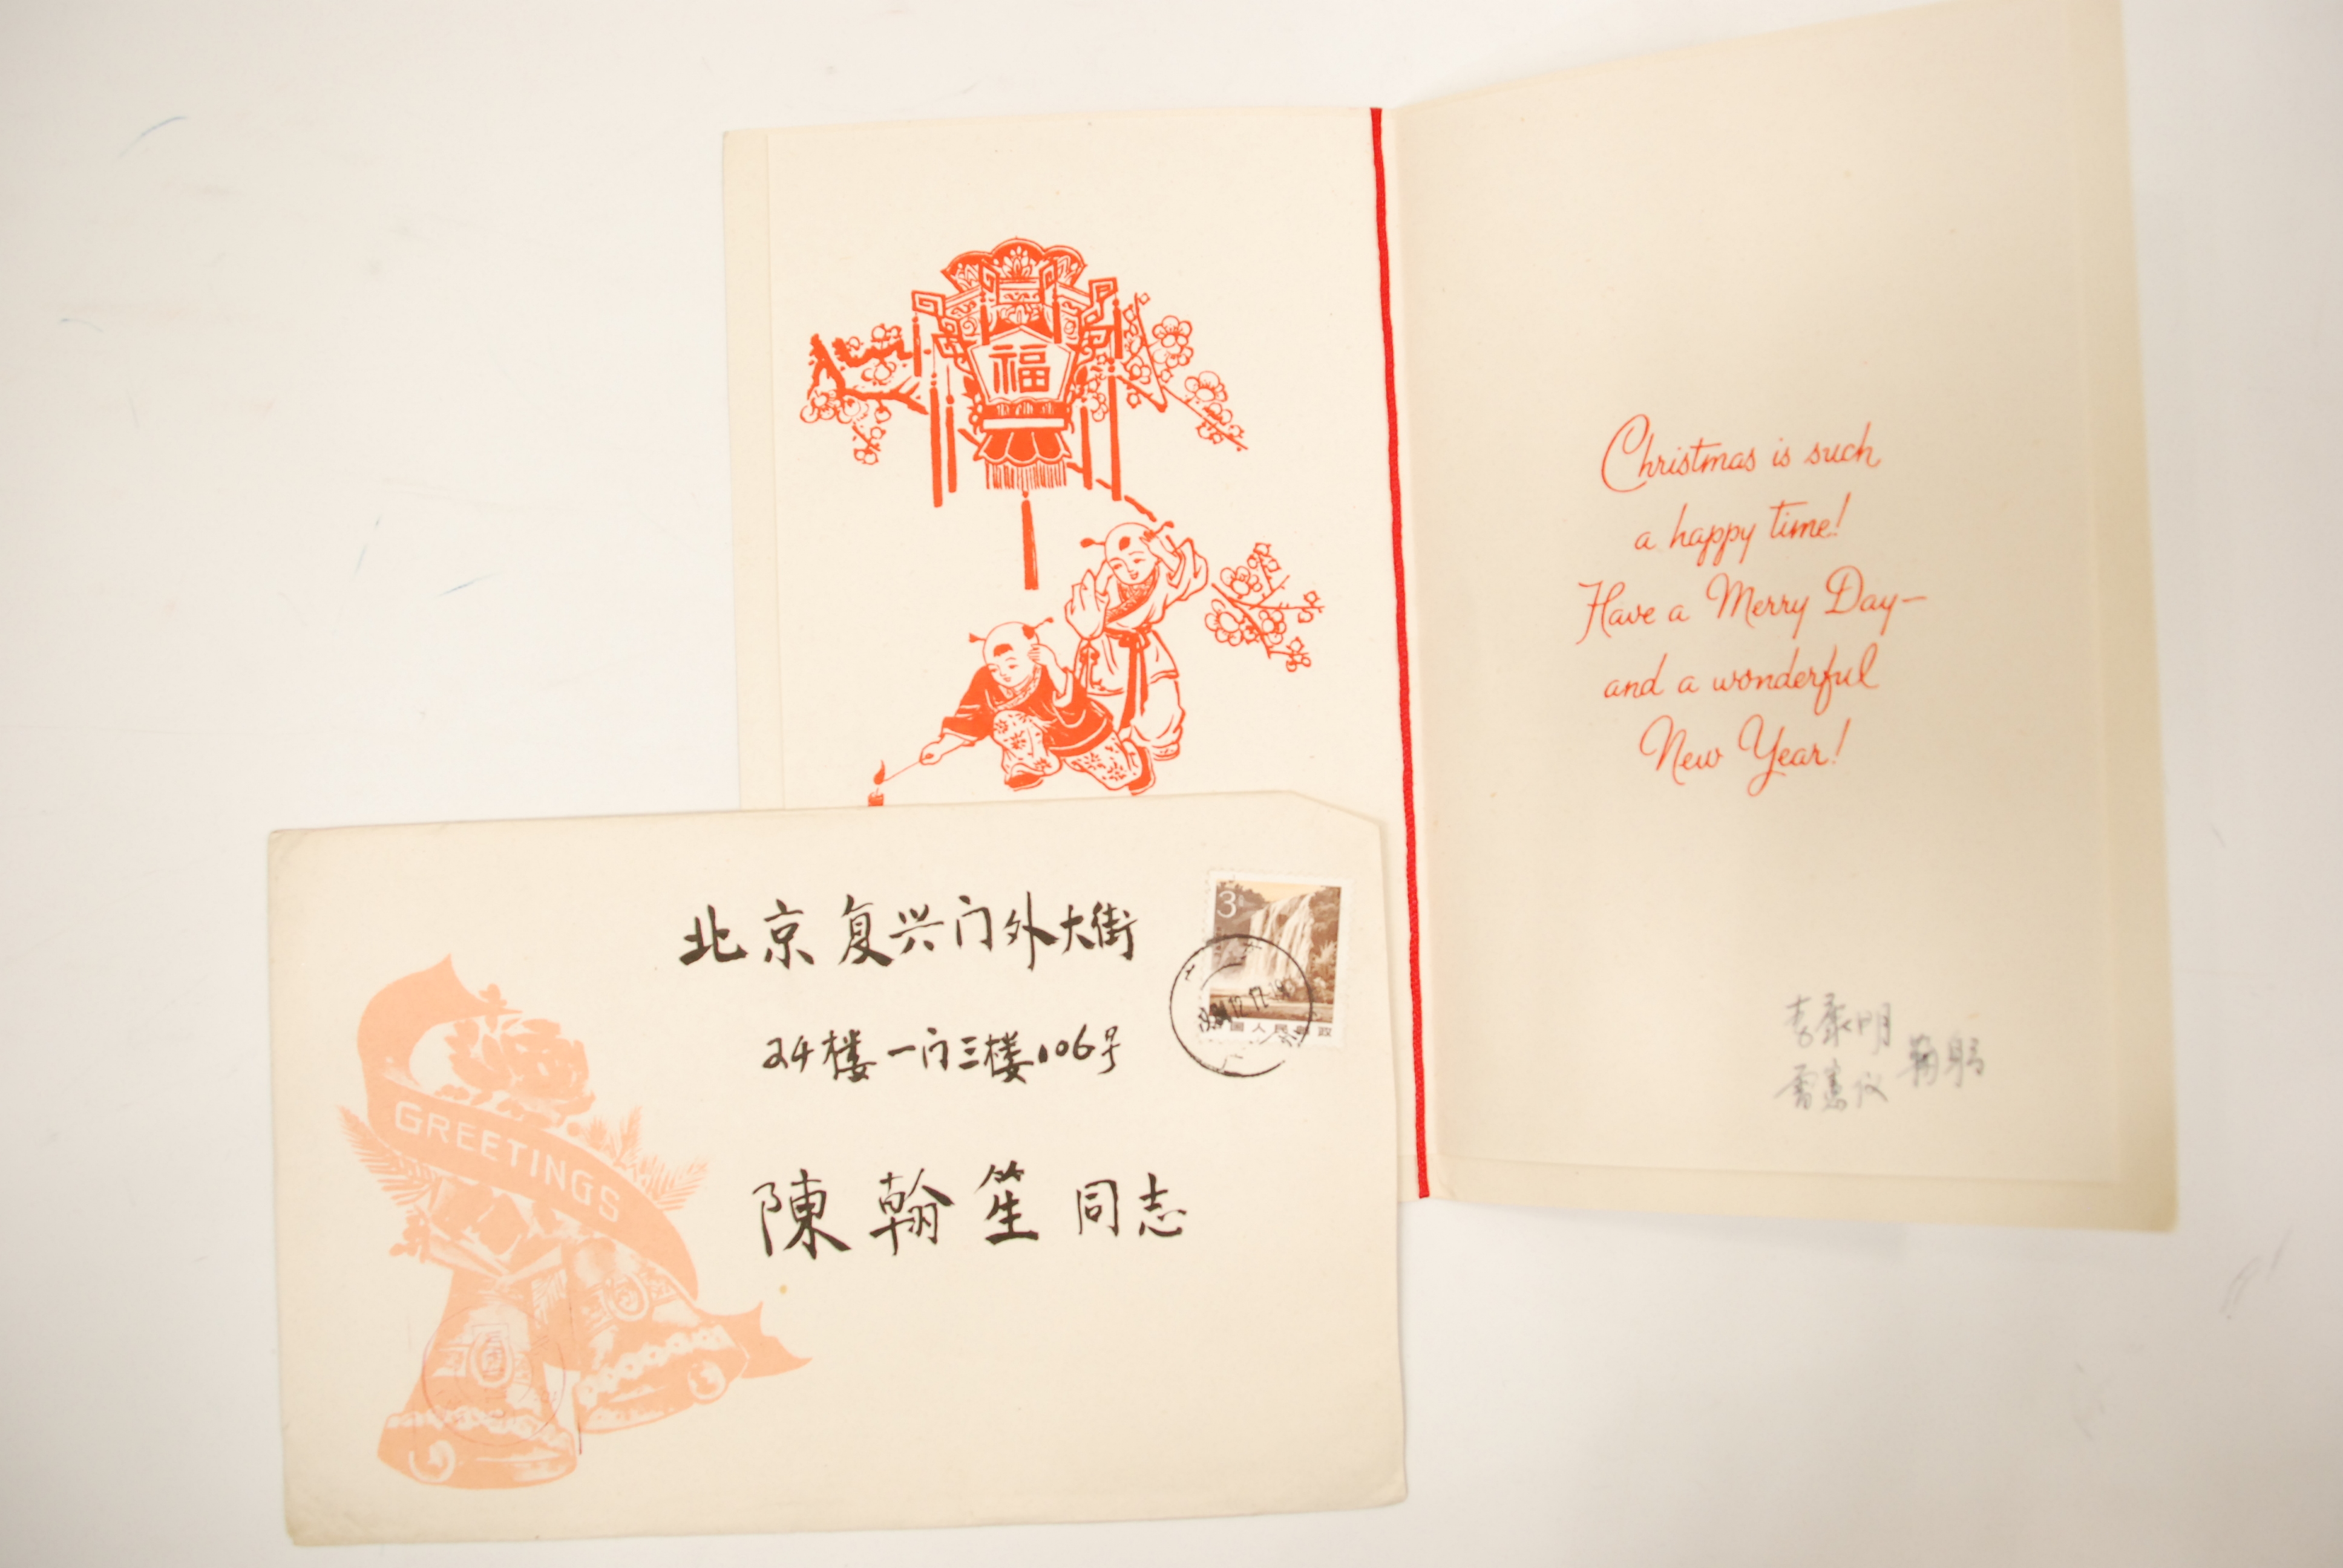 福
Christmas is such
a happy time!
Have a Merry Day—
and a wonderful
New Year!
鞠躬
北京复兴门外大街
24楼一门三楼106号
陳翰笙同志
GREETINGS
3
国人民邮政